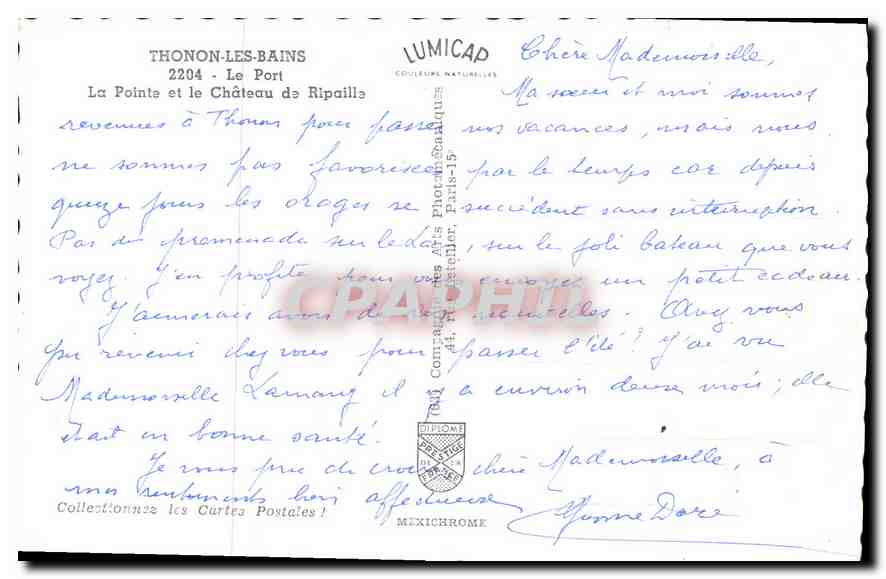 THONON-LES-BAINS
2204 - Le Port
La Pointe et le Château de Ripaille
LUMICAP
COULEURS NATURELLES
Chère Mademoiselle,
Ma sœur et moi sommes
revenues à Thonon pour passer nos vacances, mais nous
ne sommes pas favorisées par le temps car depuis
quinze jours les orages se succèdent sans interruption.
Pas de promenade sur le Lac, sur le joli bateau que vous
voyez. J'en profite pour vous envoyer un petit cadeau.
J'aimerais avoir de vos nouvelles. Avez vous
pu revenir chez vous pour passer l'été? J'ai vu
Mademoiselle il y a environ deux mois; elle
était en bonne santé.
Je vous prie de croire, chère Mademoiselle, à
mes sentiments bien affectueux
Yvonne Doré
(03) Compagnie des Arts Photomécaniques
44, rue Paris-15e
DIPLOME
PRESTIGE
DE LA
FRANCE
Collectionnez les Cartes Postales !
MEXICHROME
CPAPHIL